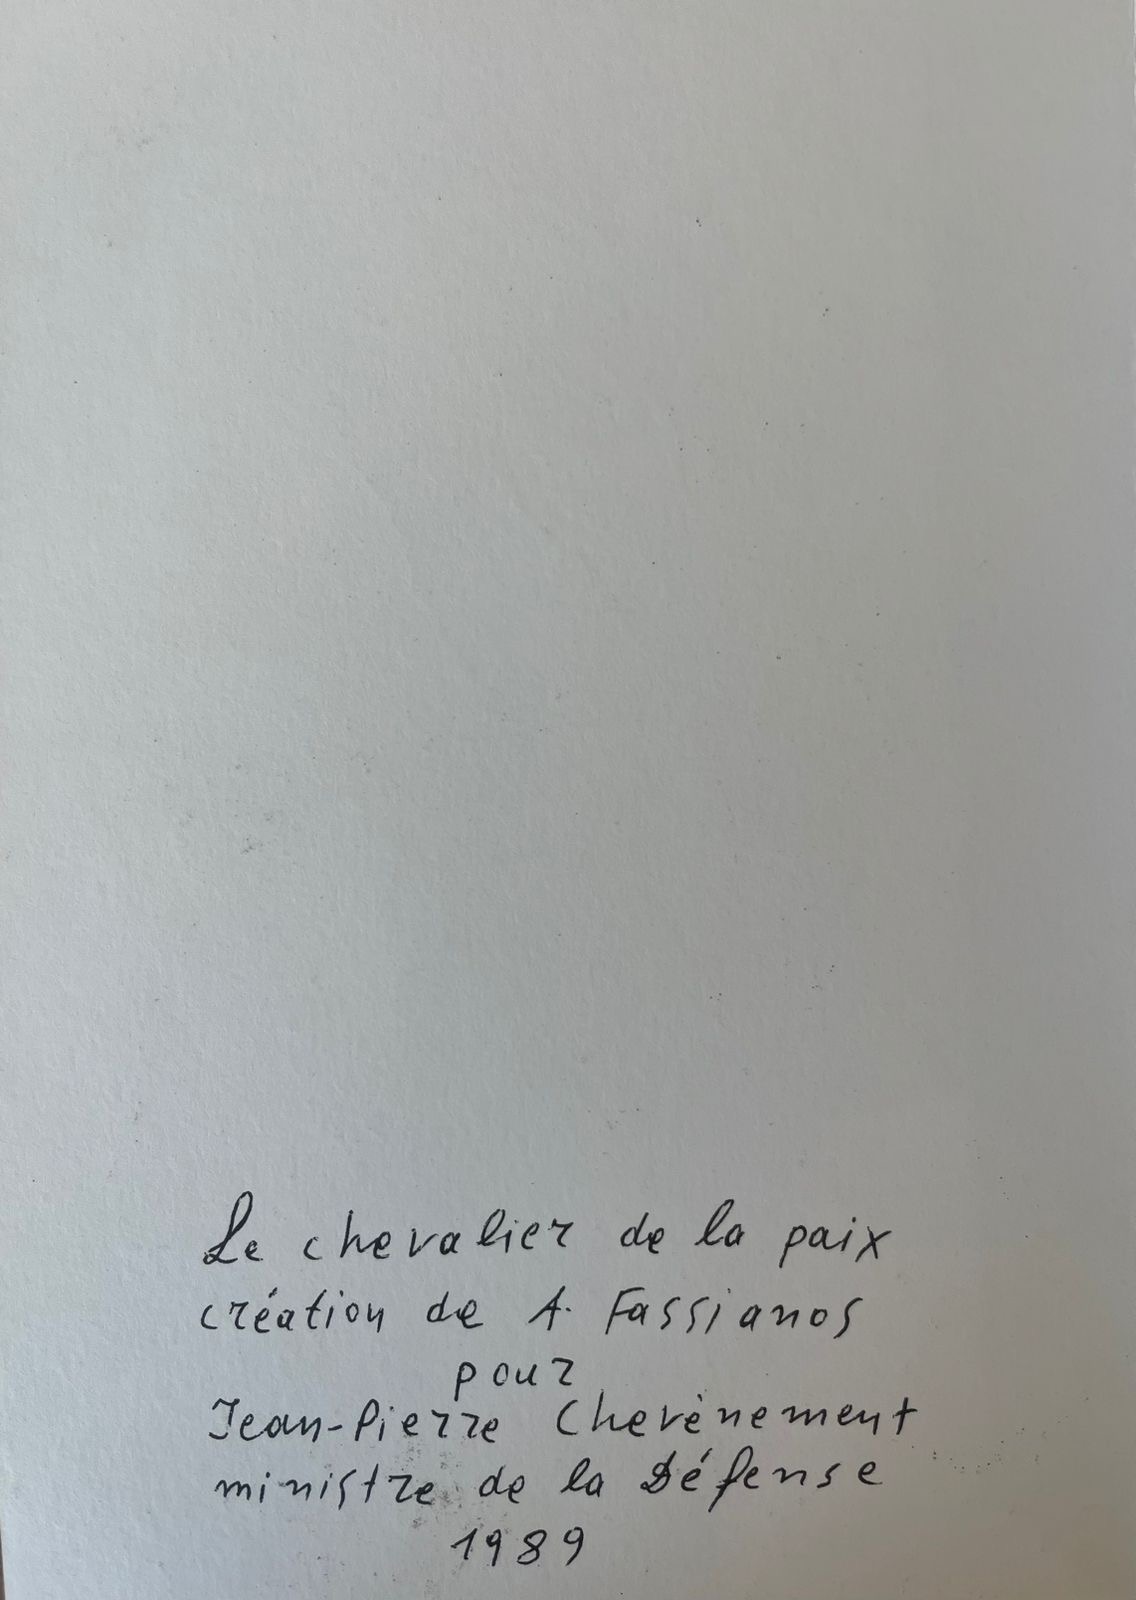 Le chevalier de la paix
création de A. Fassianos
pour
Jean-Pierre Chevènement
ministre de la Défense
1989